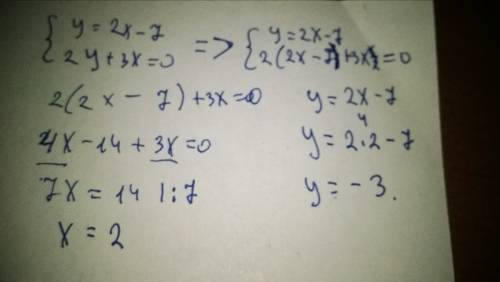 { y = 2x - 7 => { y = 2x - 7
{ 2y + 3x = 0 { 2(2x - 7) + 3x = 0
2(2x - 7) + 3x = 0
4x - 14 + 3x = 0
7x = 14 |:7
x = 2
y = 2x - 7
4
y = 2·2 - 7
y = -3.